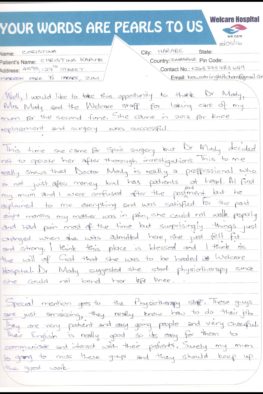 YOUR WORDS ARE PEARLS TO US
Welcare Hospital
WE CARE
Name: CHRISTINA
City: HARARE State:
Patient's Name: CHRISTINA
Country: ZIMBABWE Pin Code:
Address: STREET
Contact No.:
Email:
Well, I would like to take this opportunity to thank Dr Mody,
Mrs Mody and the Welcare staff for taking care of my
mum for the second time. She came in 2013 for knee
replacement and surgery was successful.
This time she came for spine surgery but Dr Mody decided
not to operate her after thorough investigations. This to me
really shows that Doctor Mody is really a professional who
is not just after money but has patients at heart. At first
my mum and I were confused after the but he
explained to me everything and was satisfied. For the past
eight months my mother was in pain, she could not walk properly
and had pain most of the time but surprisingly things just
changed when she was admitted here, she just felt fit
and strong. I think this place is blessed and I think its
the will of God that she was to be healed @ Welcare
Hospital. Dr Mody suggested she start physiotherapy since
she could not bend her left knee.
Special mention goes to the Physiotherapy staff. These guys
are just amazing, they really know how to do their job.
They are very patient and easy going people and very cheerful.
Their English is really good so its easy for them to
communicate and interact with their patients. Surely my mum
is going to miss these guys and they should keep up
the good work.